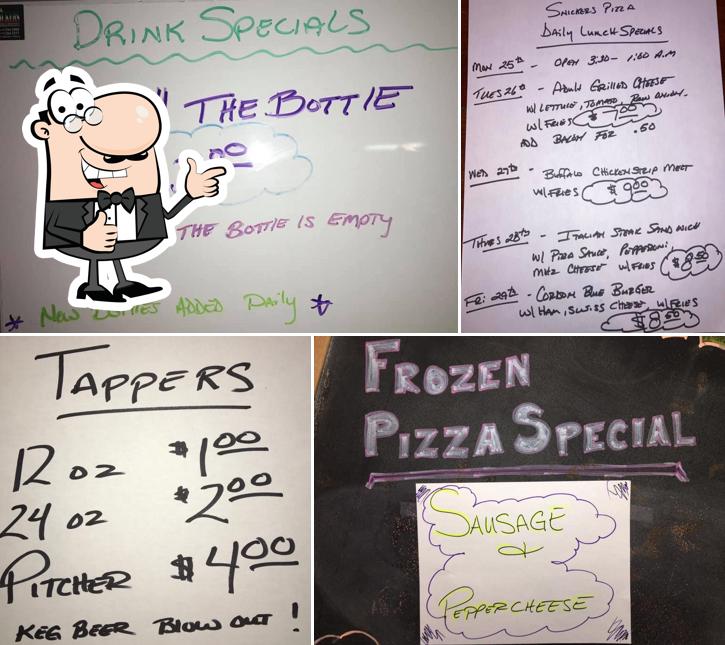 DRINK SPECIALS
THE BOTTLE
THE BOTTLE IS EMPTY
NEW BOTTLES ADDED DAILY
SNICKERS PIZZA
DAILY LUNCH SPECIALS
MON 25th - OPEN 3:30 - 1:00 A.M
TUES 26th - ADULT GRILLED CHEESE
W/ LETTUCE, TOMATO, RAW ONION,
W/ FRIES $7.00
ADD BACON FOR .50
WED 27th - BUFFALO CHICKEN STRIP MELT
W/ FRIES $9.00
THURS 28th - ITALIAN STEAK SANDWICH
W/ PIZZA SAUCE, PEPPERONI,
MOZ CHEESE W/ FRIES $8.50
FRI 29th - CORDON BLUE BURGER
W/ HAM, SWISS CHEESE, W/ FRIES
$8.50
TAPPERS
12 oz $1.00
24 oz $2.00
PITCHER $4.00
KEG BEER BLOW OUT!
FROZEN
PIZZA SPECIAL
SAUSAGE
&
PEPPERCHEESE